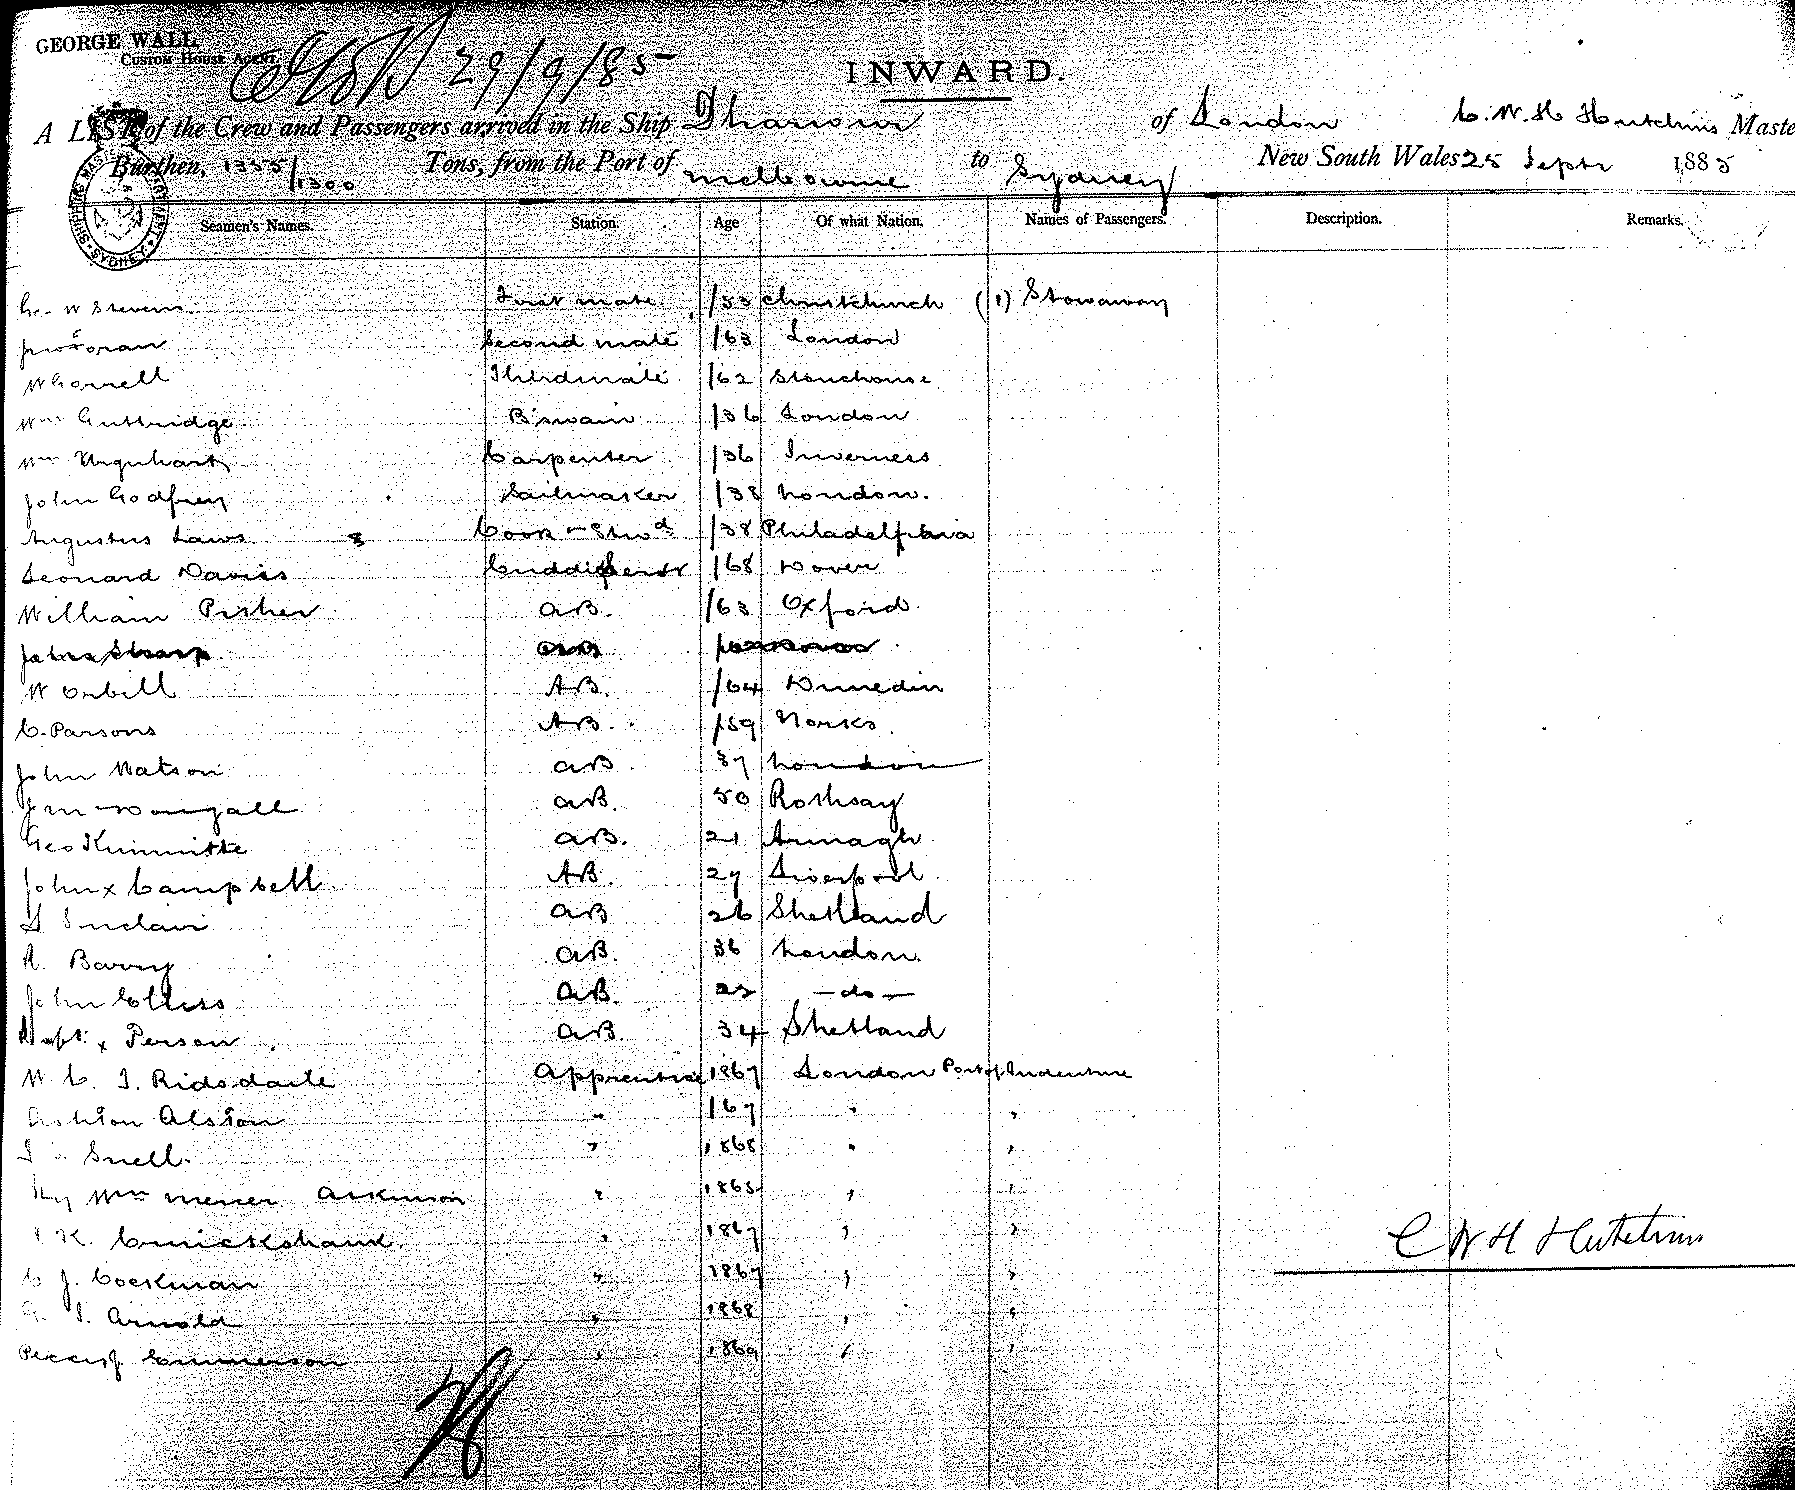 GEORGE WALL,
CUSTOM HOUSE AGENT.
29/9/85
INWARD.
A LIST of the Crew and Passengers arrived in the Ship Dharwar of London C. W. H. Hutchins Maste
Burthen, 1355/1300 Tons, from the Port of Melbourne to Sydney New South Wales 25 Septr 1885
Seamen's Names. Station. Age Of what Nation. Names of Passengers. Description. Remarks.
Geo W Stevens First mate /53 Christchurch (1) Stowaway
Second mate /63 London
W Gorrell Third mate /62 Stonehouse
Wm Guttridge B'swain /36 London
Wm Urquhart Carpenter /36 Inverness
John Godfrey Sailmaker /38 London.
Augustus Laws Cook & Stwd /38 Philadelphia
Leonard Davies /68 Dover
William Fisher AB. /63 Oxford
John Sharp AB
W Orbell AB. /64 Dunedin
C. Parsons AB. /59 Yorks
John Watson AB. 37 London
J McDougall AB. 50 Rothsay
Geo Kinnutte AB. 21 Armagh
John x Campbell AB. 27 Liverpool
Sinclair AB 26 Shetland
R. Barry AB. 36 London.
John Elliss AB. 25 - do -
x Person AB. 34 Shetland
W C. T. Ridsdale Apprentice 1867 London Port of Indenture
Ashton Alston " /67 " "
Snell. " 1868 " "
Hy Wm Mercer Atkinson " 1868 " "
K. Cruickshank. " 1867 " "
C J. Cockman " 1867 " "
T. Arnold " 1868 " "
Emmerson " 1869 " "
C W H Hutchins